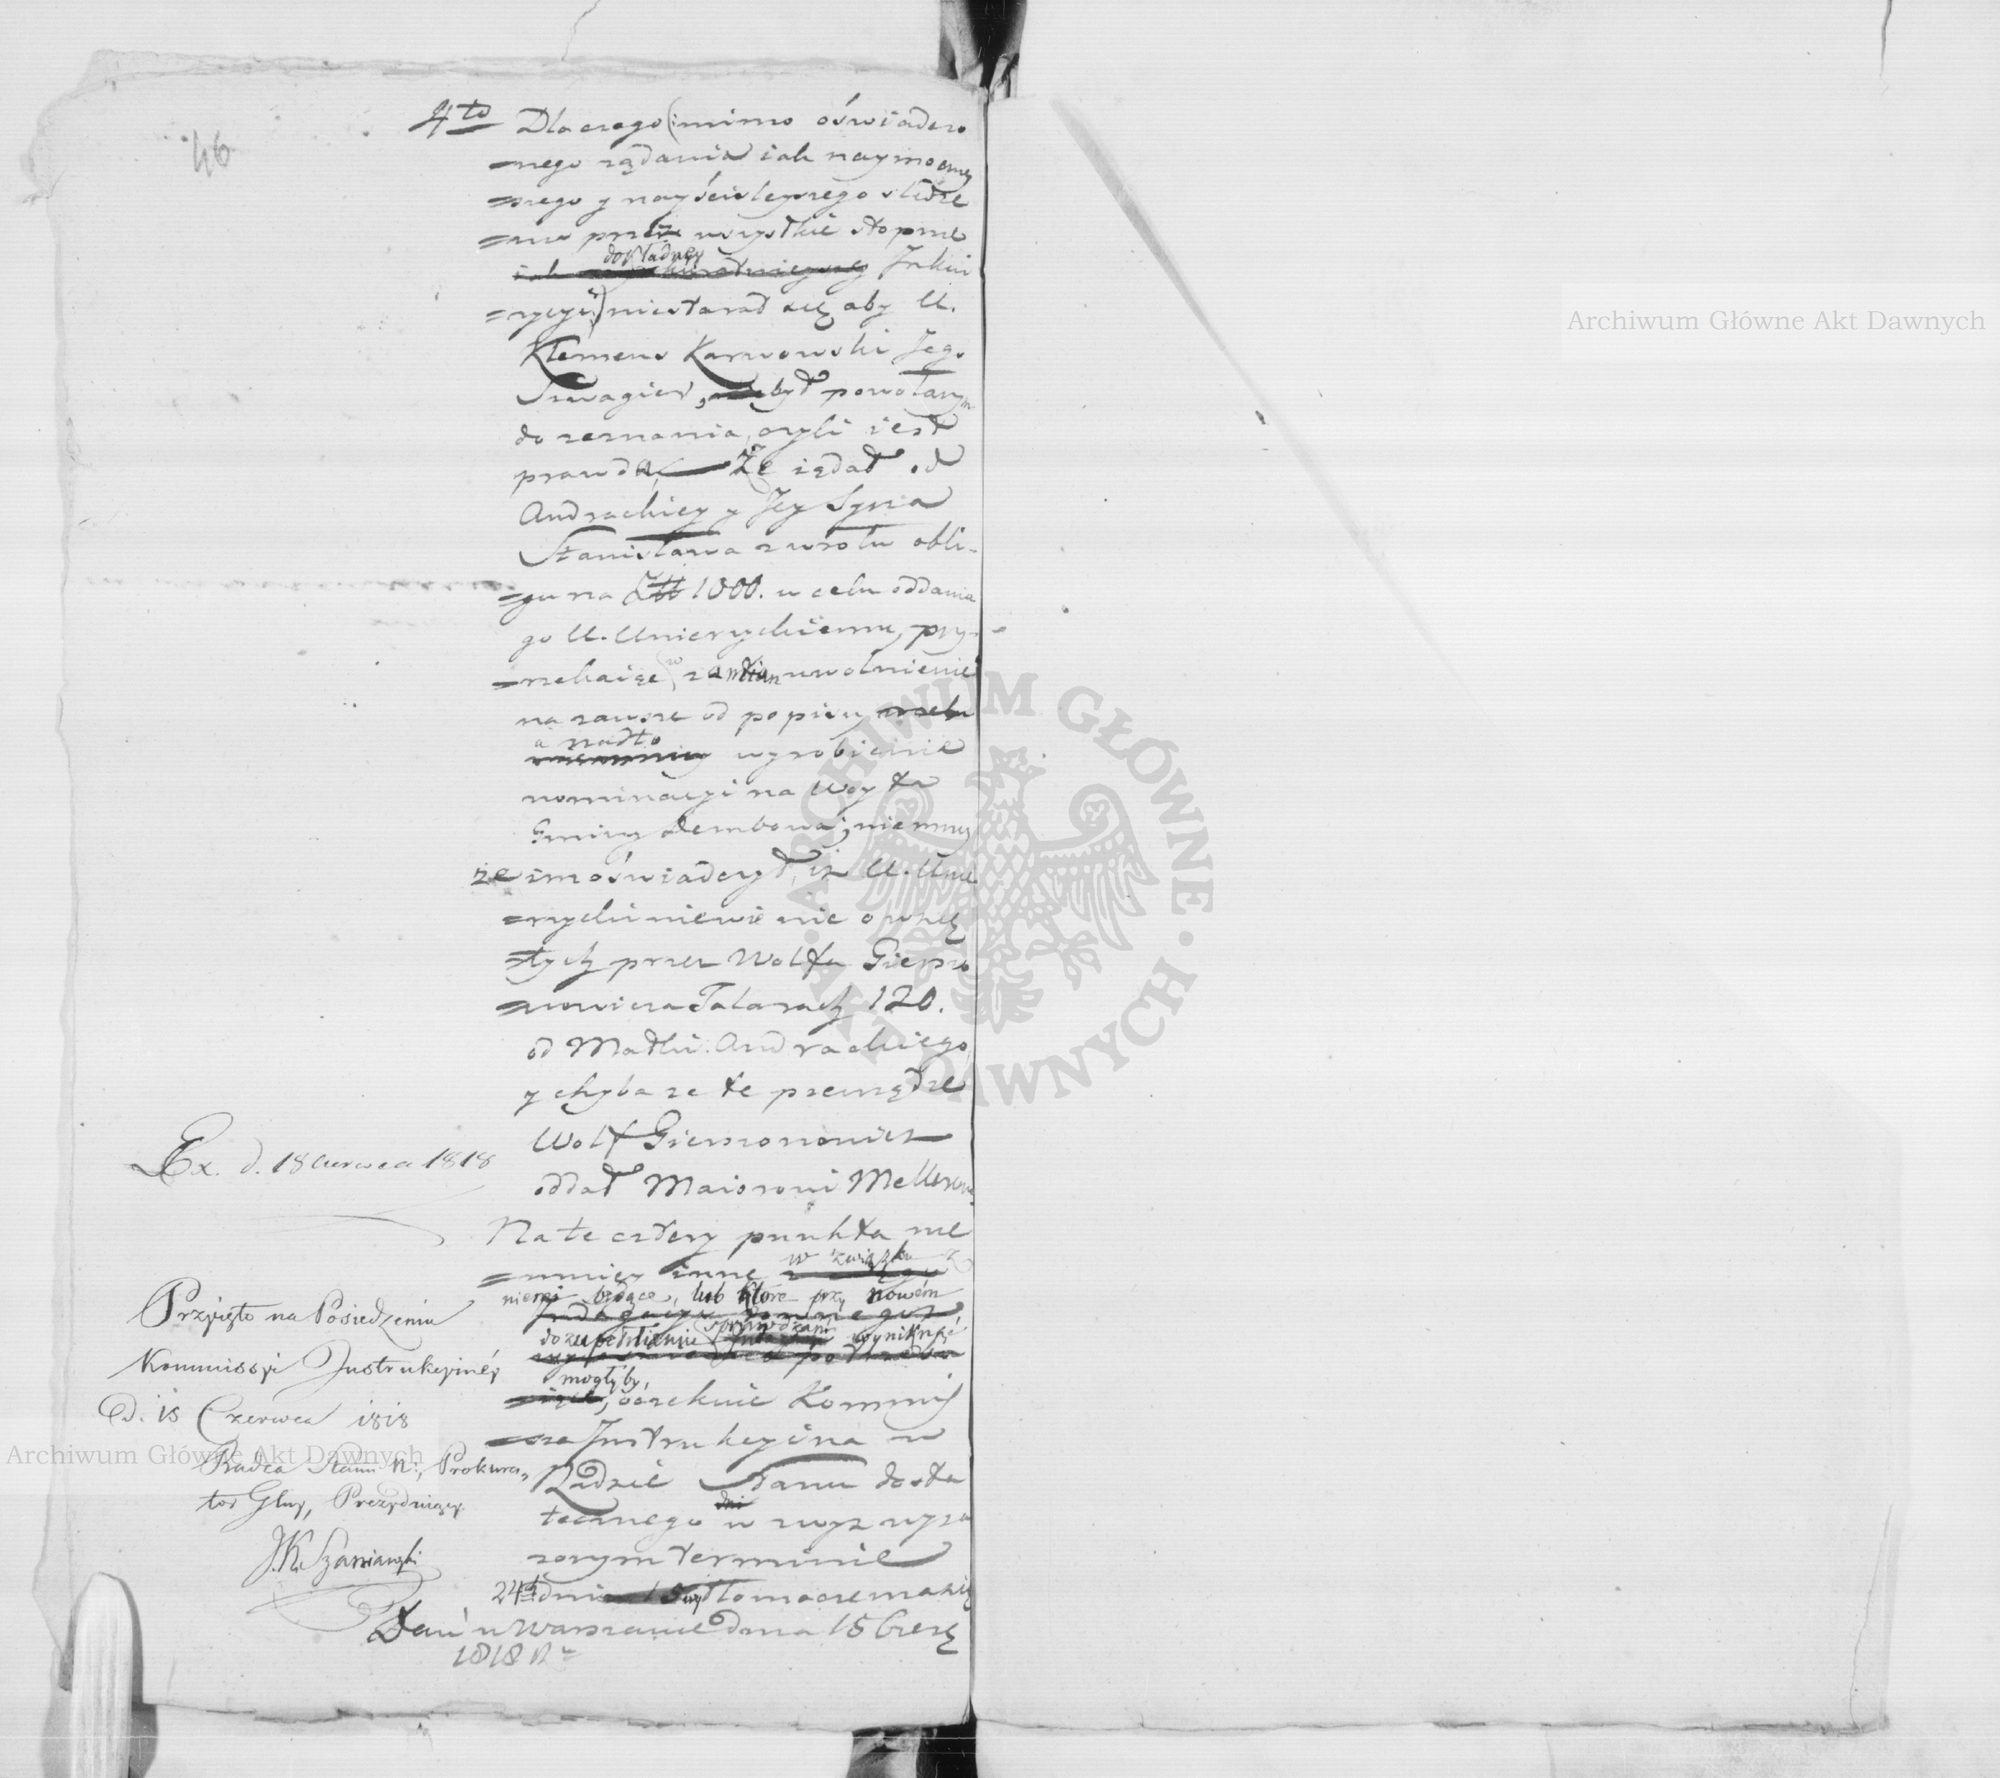 46
4to Dlaczego (: mimo oświadczo
=nego rządania iak naymocniey
=szego y nayściśleyszego śledze
=nia przez wszystkie stopnie
dokładney
Inkwi
=zycyi :) niestarał się aby U.
Klemens Karwowski Jego
Szwagier, był powołanym
do zeznania, czyli iest
prawdą, Że żądał od
Andrackiey y Jey Syna
Stanisława zwrotu obli-
=gu na Złł 1000. w celu oddania
go U. Unierzyckiemu, przy-
=rzekaiąc w zamian uwolnienie
na zawsze od popisu
a nadto wyrobienie
nominacyi na Woyta
Gminy Dembowa; niemniey
że im oświadczył, iż U. Unie
=rzycki niewie nic o wzię
=tych przez Wolfa Gierszo
=nowicza Talarach 120.
od Matki Andrackiego
y chyba że te pieniądze
Wolf Gierszonowicz
oddał Maiorowi Mellerowi.
Na te cztery punkta nie
=mniey inne w związku z
niemi będące, lub które przy nowém
dozupełnieniu sprawdzań wyniknąć
mogłyby,
oczekuie Kommis
=sya Instrukcyina w
Radzie Stanu dosta
tecznego w zwyż wyra
żonym terminie
24 dni tłomaczenia się
Dan w Warszawie dnia 15 Czerw
1818 R
Ex. d. 18 Czerwca 1818
Przyięto na Posiedzeniu
Kommissyi Instrukcyinéy
d. 15 Czerwca 1818
Radca Stanu N:, Prokura-
tor Glny, Prezyduiący.
J. K. Szaniawski
Archiwum Główne Akt Dawnych
Archiwum Główne Akt Dawnych
ARCHIWUM GŁÓWNE AKT DAWNYCH